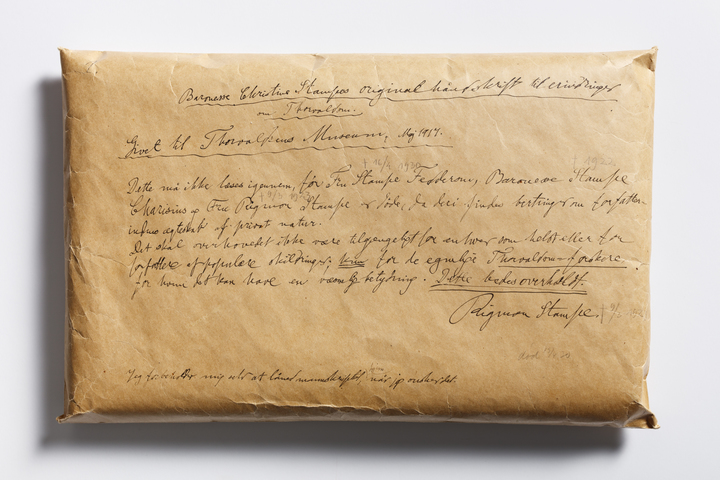 Baronesse Christine Stampes original håndskrift til erindringer
om Thorvaldsen.
Givet til Thorvaldsens Museum, Maj 1917.
Dette må ikke læses igennem, før Fru Stampe Feddersen, Baronesse Stampe
Charisius og Fru Rigmor Stampe er døde, da deri findes beretning om forfatter-
indens ægteskab af privat natur.
Det skal overhovedet ikke være tilgængeligt for enhver som helst eller for
forfattere af populære skildringer, kun for de egentlige Thorvaldsen-forskere
for hvem det kan have en væsentlig betydning. Dette bedes overholdt.
Rigmor Stampe.
død
Jeg forbeholder mig ret at låne manuskriptet, når jeg ønsker det.